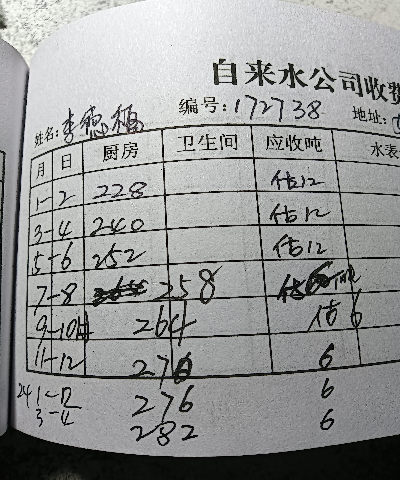 自来水公司收费
姓名:李德福 编号:172738 地址:
月 日 厨房 卫生间 应收吨 水表
1-2 228 估12
3-4 240 估12
5-6 252 估12
7-8 258 估6吨
9-10 264 估6
11-12 270 6
24 1-2 276 6
3-4 282 6